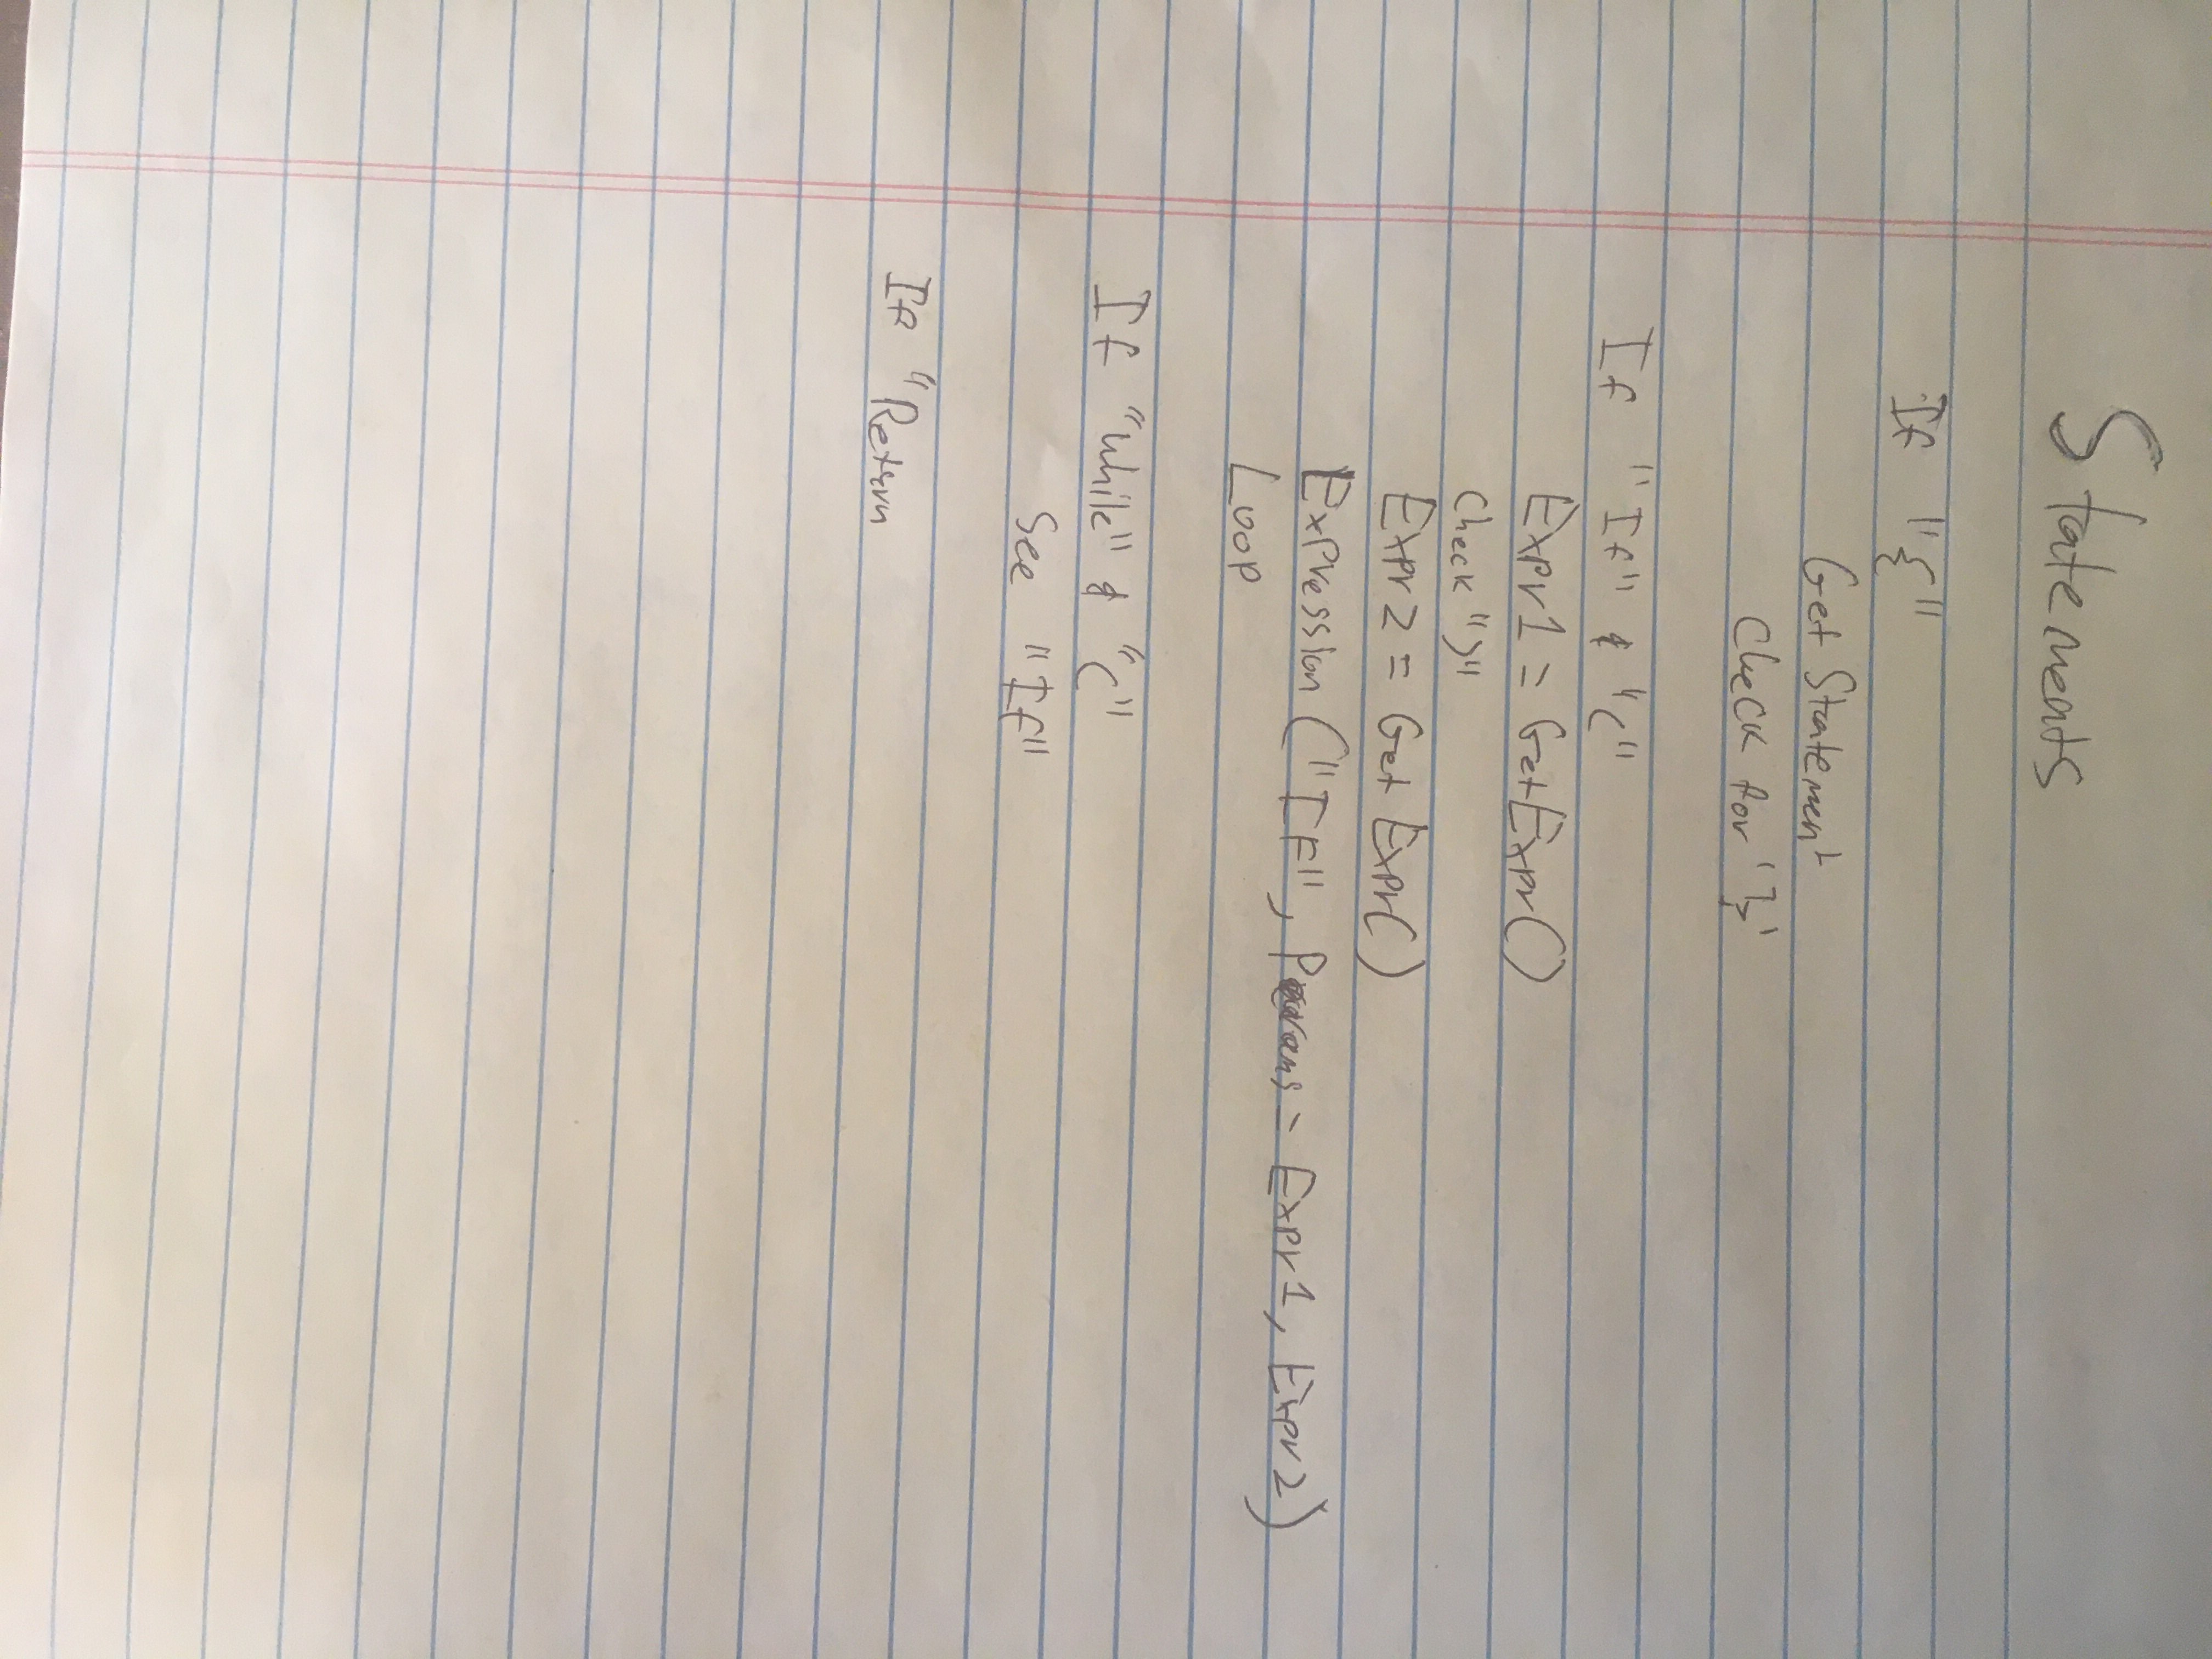 Statements
If "{"
Get Statement
Check for '}'
If "If" & "("
Expr1 = GetExpr()
Check ")"
Expr2 = Get Expr()
Expression ("IF", Params = Expr1, Expr2)
Loop
If "While" & "("
See "If"
If "Return